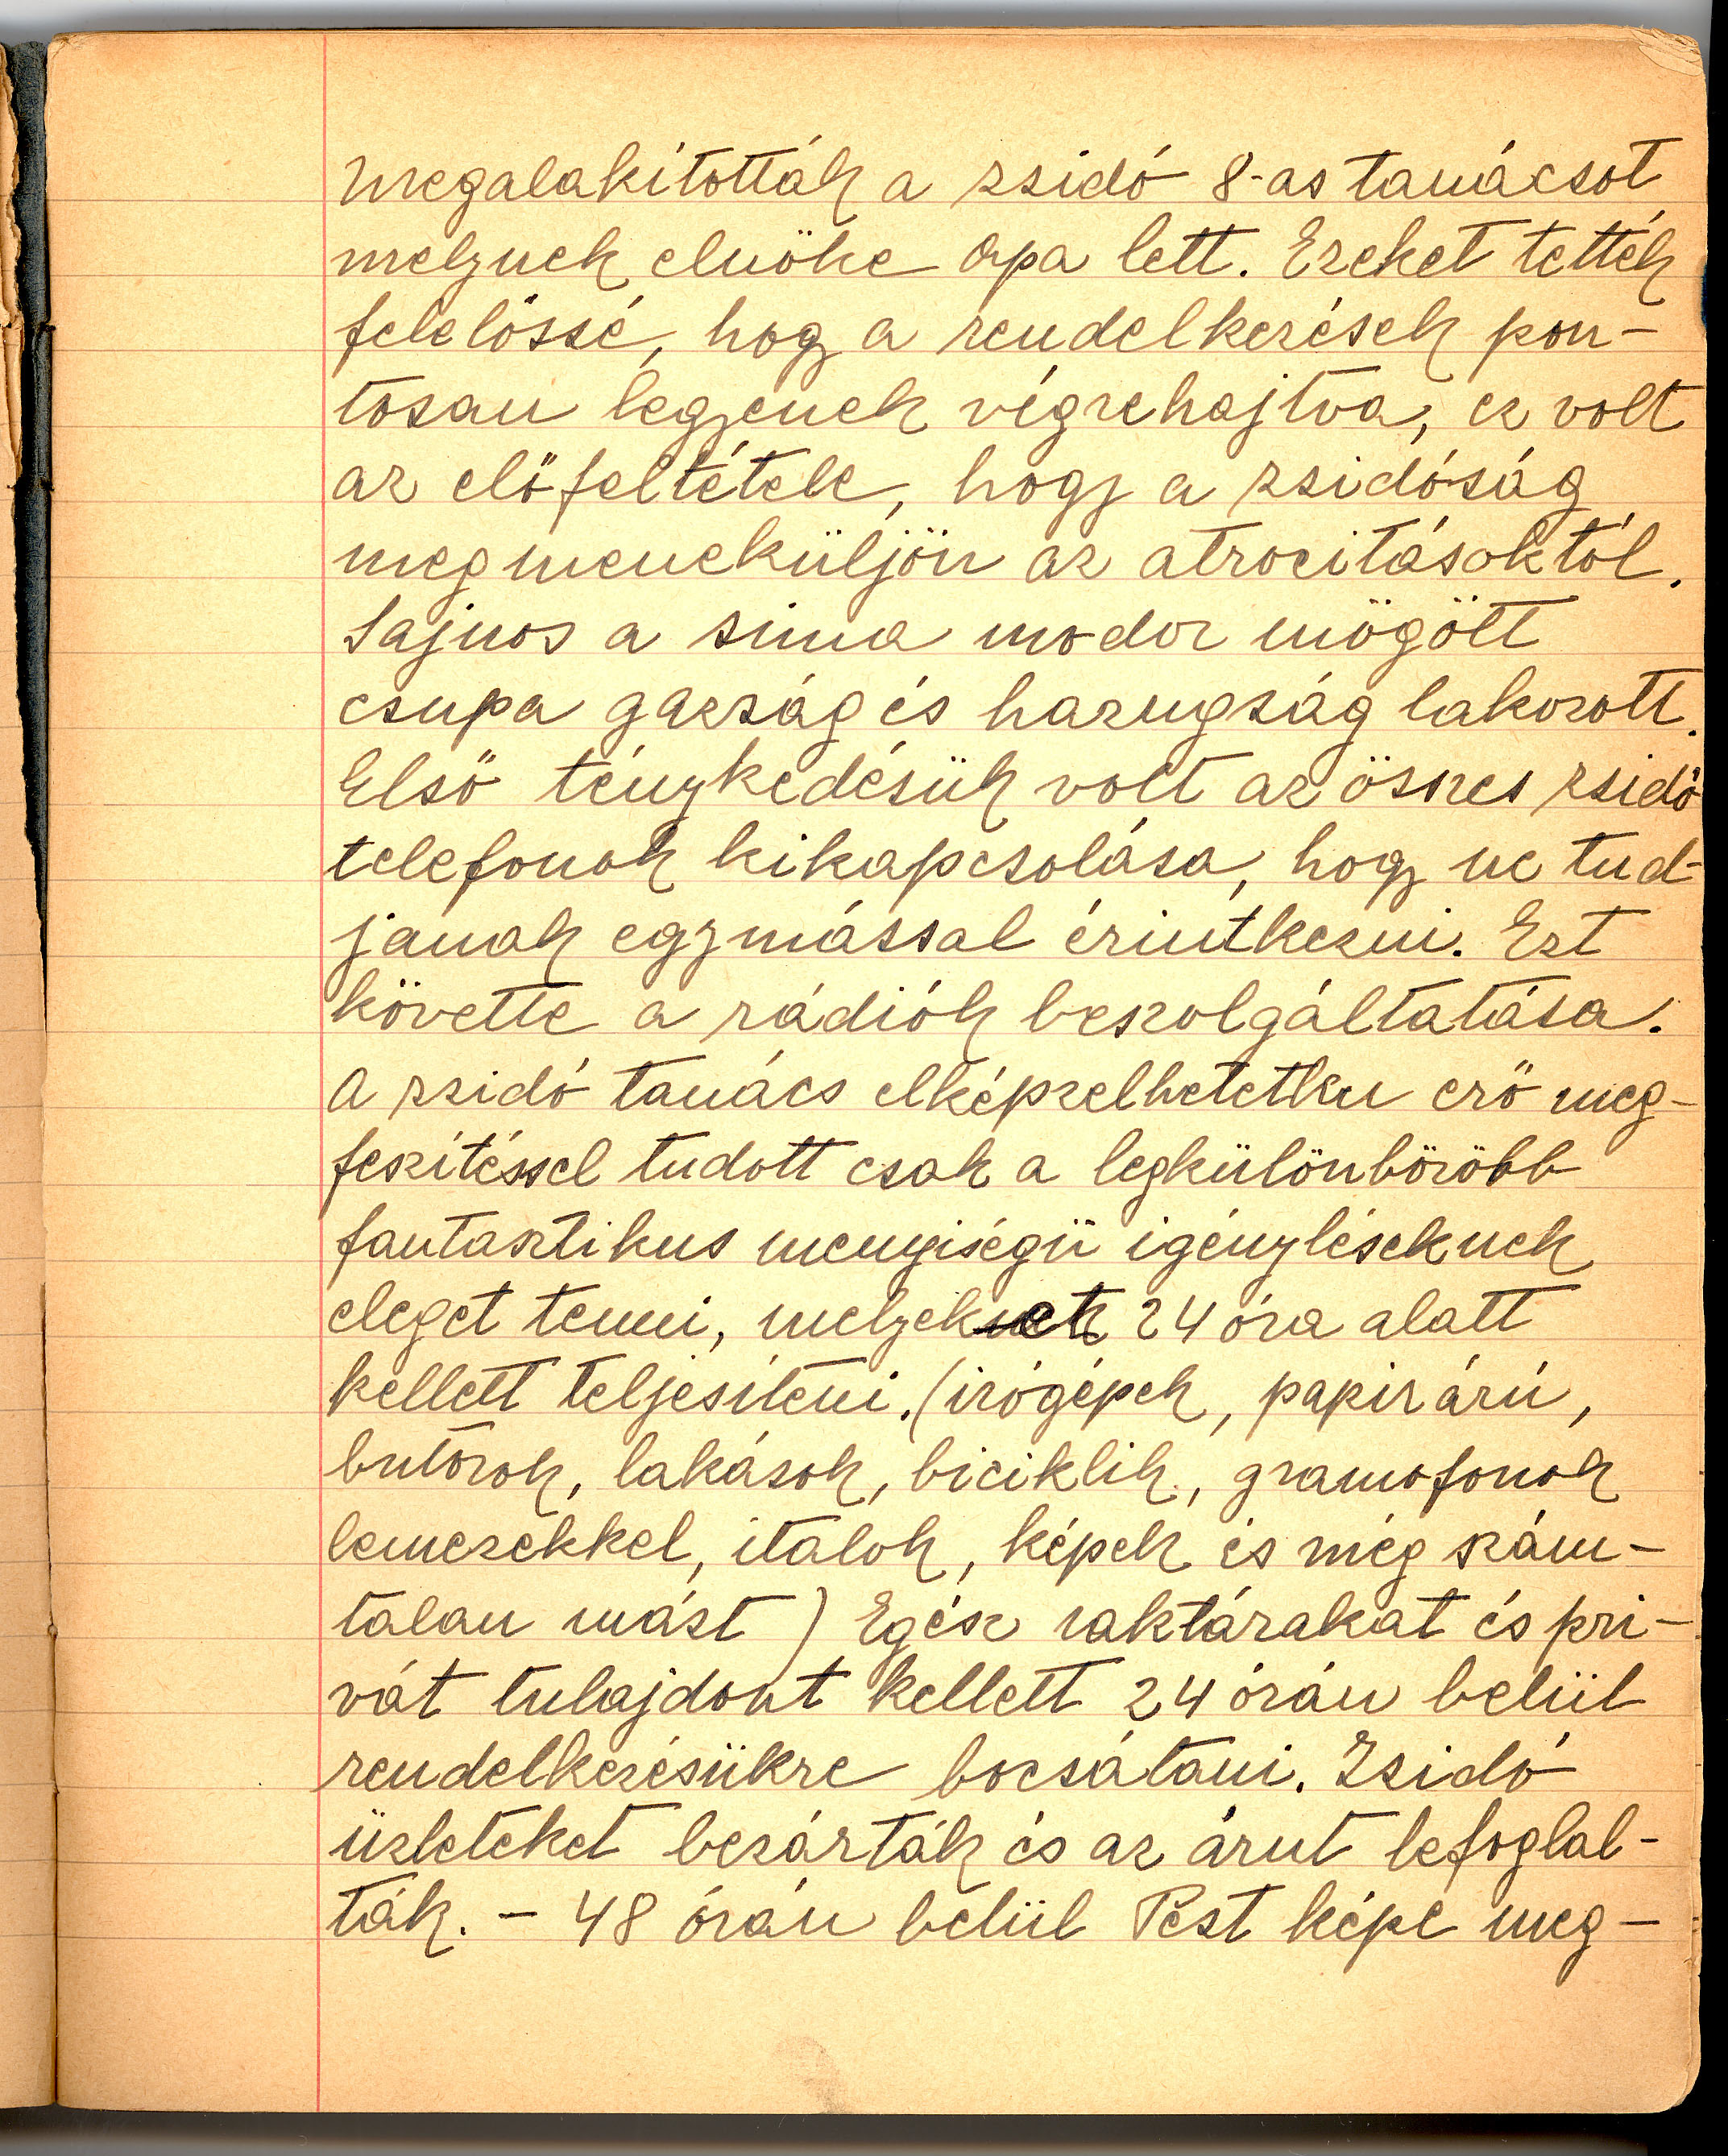 megalakították a zsidó 8-as tanácsot
melynek elnöke Opa lett. Ezeket tették
felelőssé, hogy a rendelkezések pon-
tosan legyenek végrehajtva, ez volt
az előfeltétele, hogy a zsidóság
megmeneküljön az atrocitásoktól.
Sajnos a sima modor mögött
csupa gazság és hazugság lakozott.
Első ténykedésük volt az összes zsidó
telefonok kikapcsolása, hogy ne tud-
janak egymással érintkezni. Ezt
követte a rádiók beszolgáltatása.
A zsidó tanács elképzelhetetlen erő meg-
feszítéssel tudott csak a legkülönbözöbb
fantasztikus menyiségü igényléseknek
eleget tenni, melyeket 24 óra alatt
kellett teljesíteni. (irógépek, papirárú,
butorok, lakások, biciklik, gramofonok
lemezekkel, italok, képek és még szám-
talan mást) Egész raktárakat és pri-
vát tulajdont kellett 24 órán belül
rendelkezésükre bocsátani. Zsidó
üzleteket bezárták és az árut lefoglal-
ták. - 48 órán belül Pest képe meg-